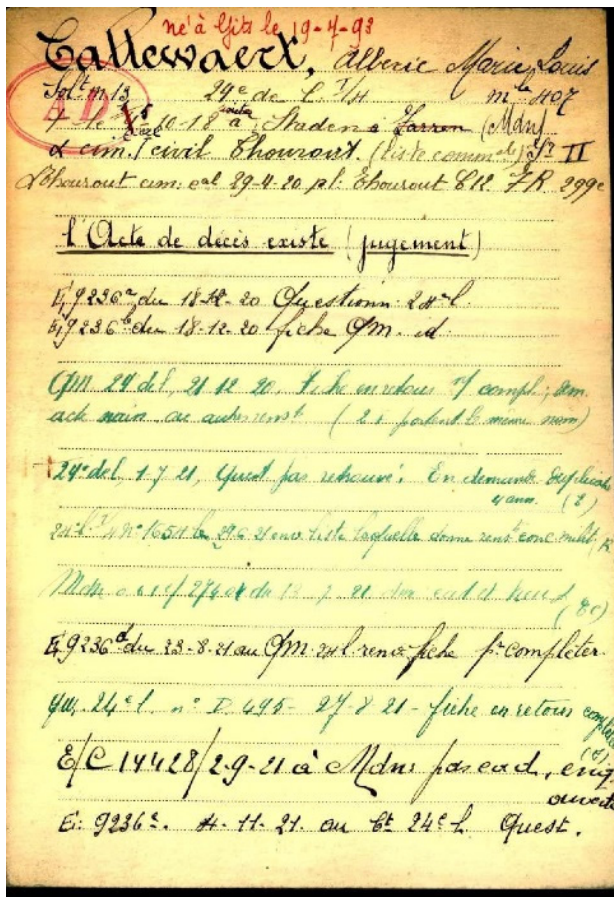 né à Gits le 19-4-93
Callewaert, Alberic Marie Louis
Solt m 13 24e de l. I/4 mle 407
A D
10-18 à Staden à Zarren (Mdn)
cim. civil Thourout. (liste commale) II
Thourout cim: cal 29-4-20 pl: Thourout C12 FR 299c
l'Acte de décès existe (jugement)
E, 9236a du 18-12-20 Questionn. 24e l.
E, 9236b du 18-12-20 fiche QM. id.
QM 24 de l, 21 12 20, Fiche en retour compl; dem.
acte ou autres renst (2 s portent le même nom)
24e de l, 1 7 21, Quest pas retrouvé. En demande duplicata
4 ann. (2)
liste laquelle donne renst conc. milit.
Mdn du 13 7 21
(8c)
E, 9236d du 23-8-21 au QM 24 l renv. fiche pr compléter.
QM. 24e l. n° D 495 - 27 8 21 - fiche en retour complétée
(e)
E/C 14428/2-9-21 à Mdn pas cad, enq.
ouverte
E: 9236e. 4-11-21. au Ct 24e l. Quest.